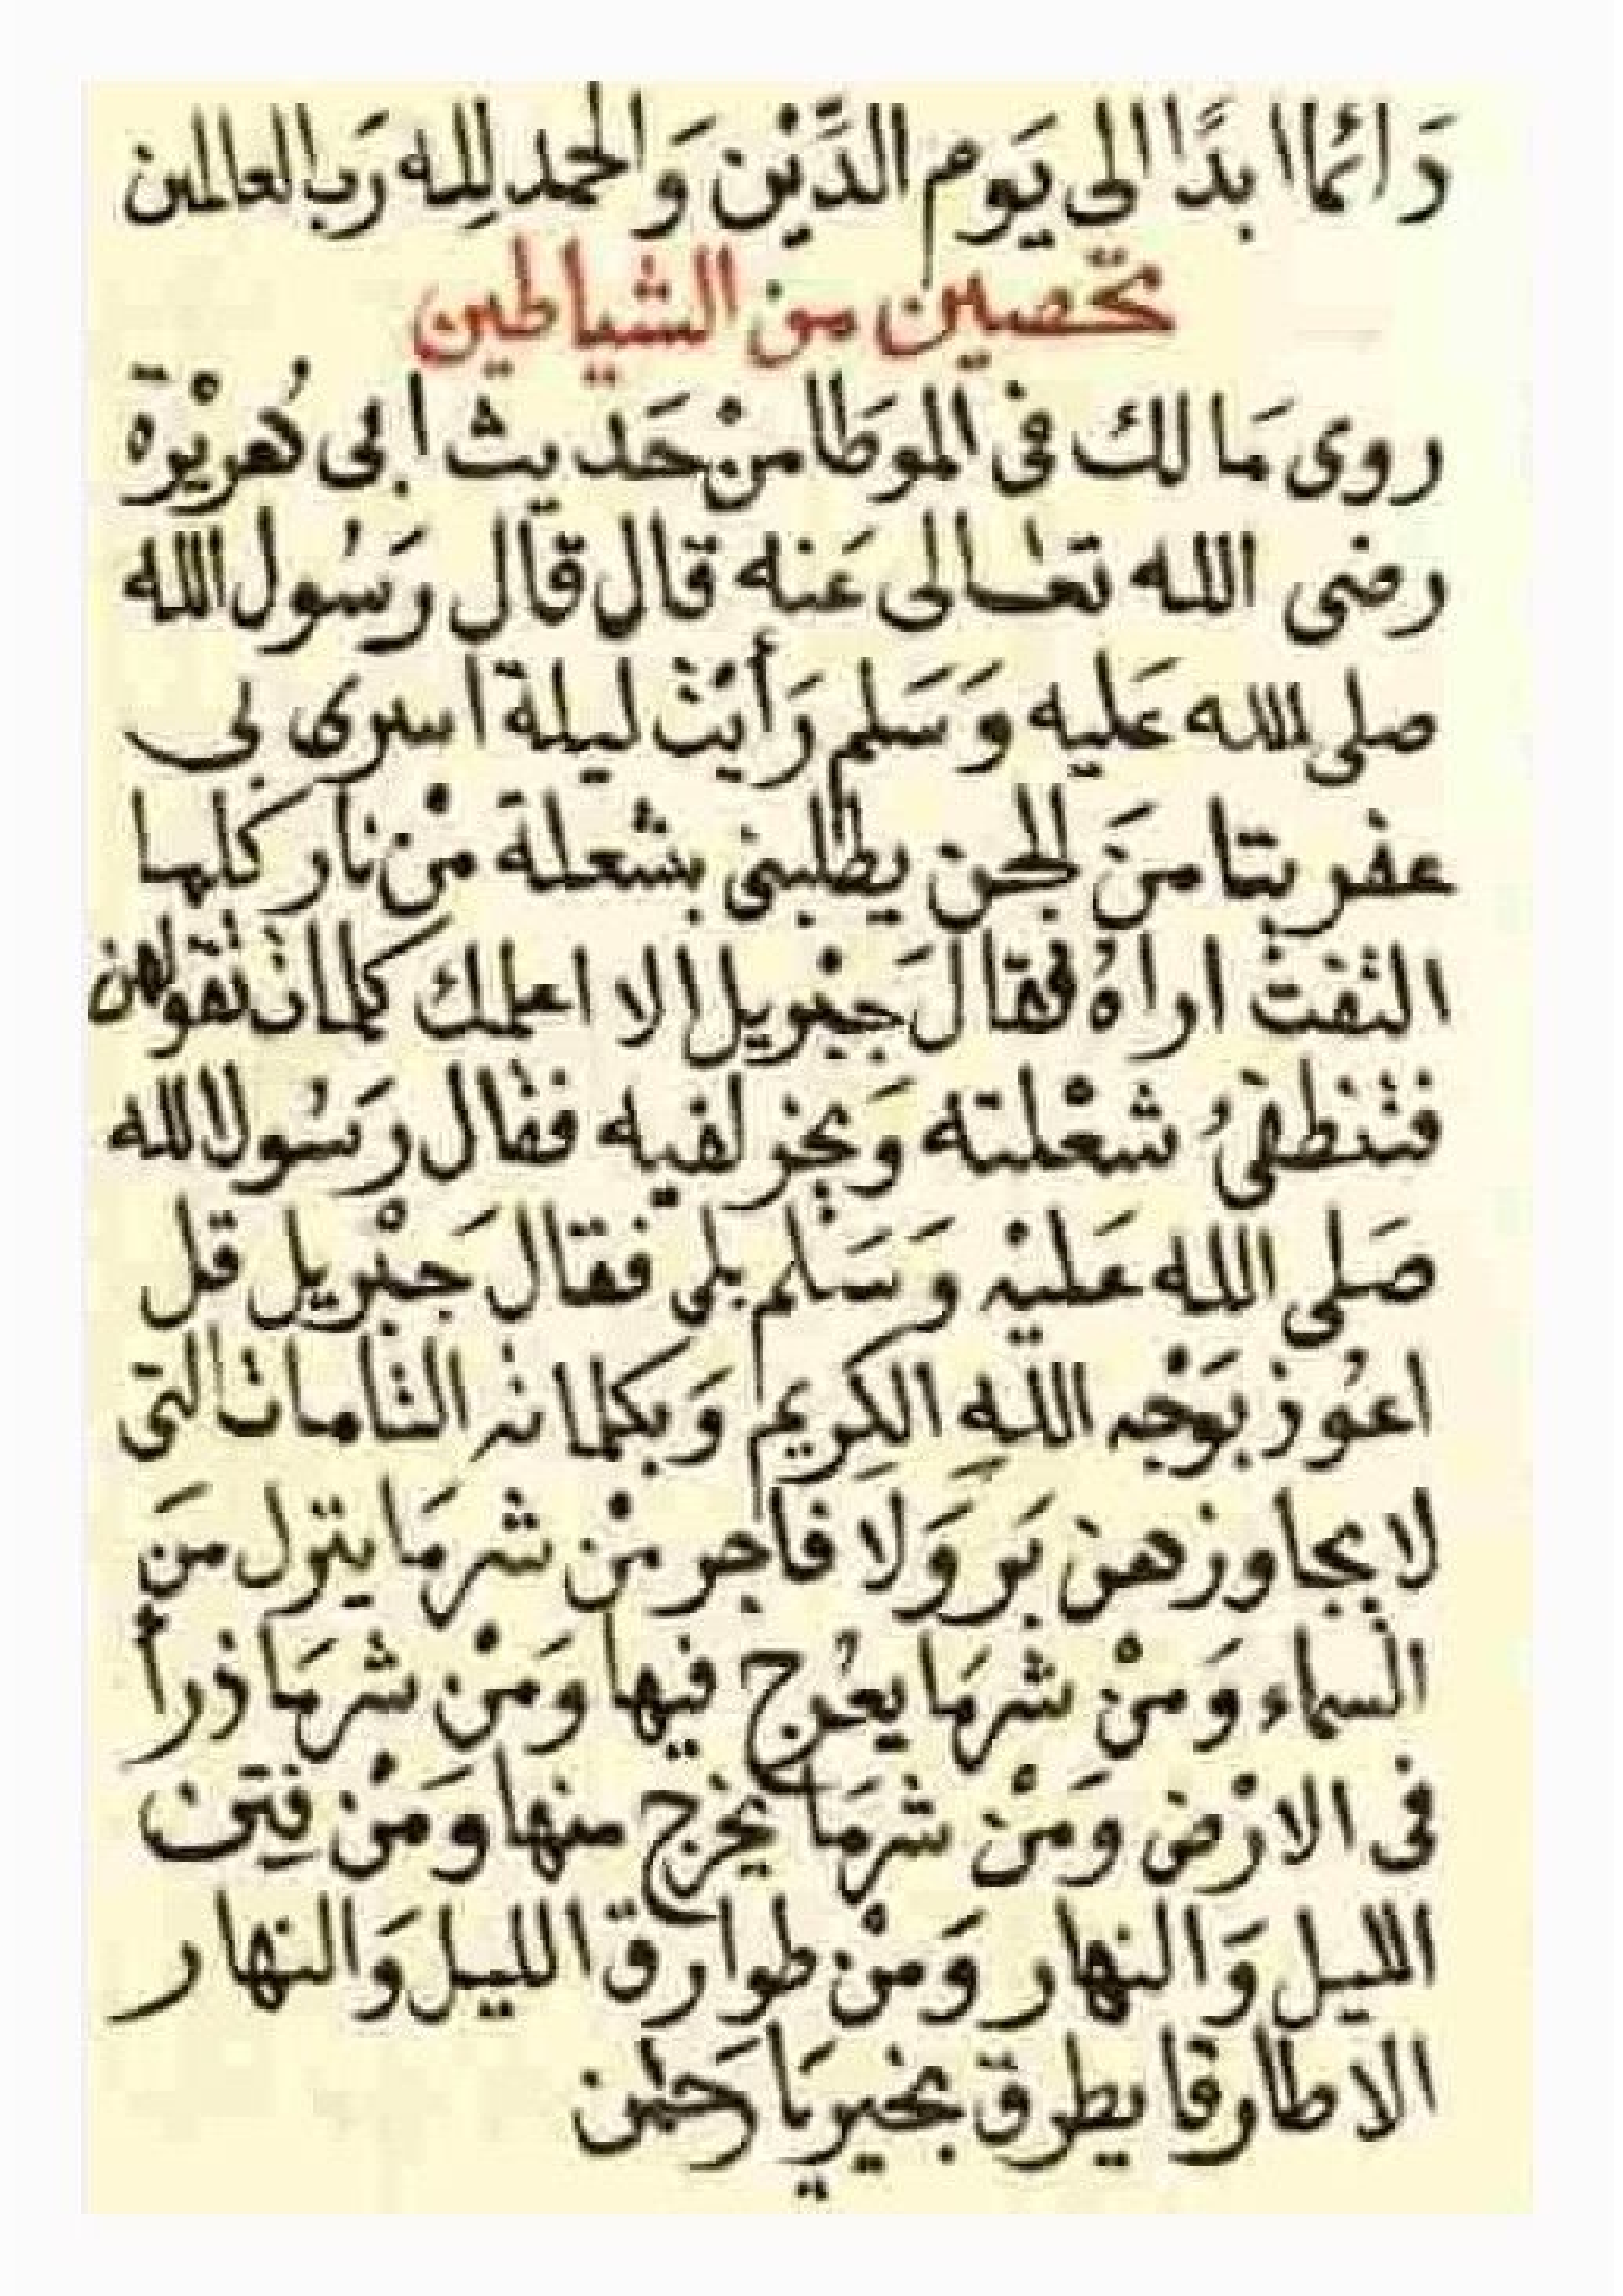 دَائمًا ابدًا الى يَوم الدِّيْن وَالحمد لِله رَب العالمين
تحصين من الشياطين
روى مَالك فى الموَطا منْ حَديث ابى هُريْرة
رضى الله تعالى عَنه قال قال رَسُول الله
صلى الله عَليه وَسَلم رَأيْت ليلة اسرى بى
عفريتا منَ الجن يطلبنى بشعلة منْ نار كلما
التفت اراهُ فقالَ جبْريل الا اعلمك كلمات تقولهن
فتنطفىُ شعْلته وَيخر لفيه فقال رَسُول الله
صَلى الله عَليْه وَسَلم بلى فقالَ جبْريل قل
اعوُذ بوَجْه اللهِ الكِريم وَبكلماته التامات التى
لا يجاوزهن بَر وَلا فاجر منْ شر مَا ينزل منَ
السماء وَمنْ شر مَا يعْرُج فيها وَمنْ شر مَا ذرأ
فى الارْض وَمنْ شر مَا يخرج منها وَمنْ فِتن
الليل وَالنهار وَمنْ طوارق الليل وَالنهار
الا طارقا يطرق بخير يَا رَحمٰن